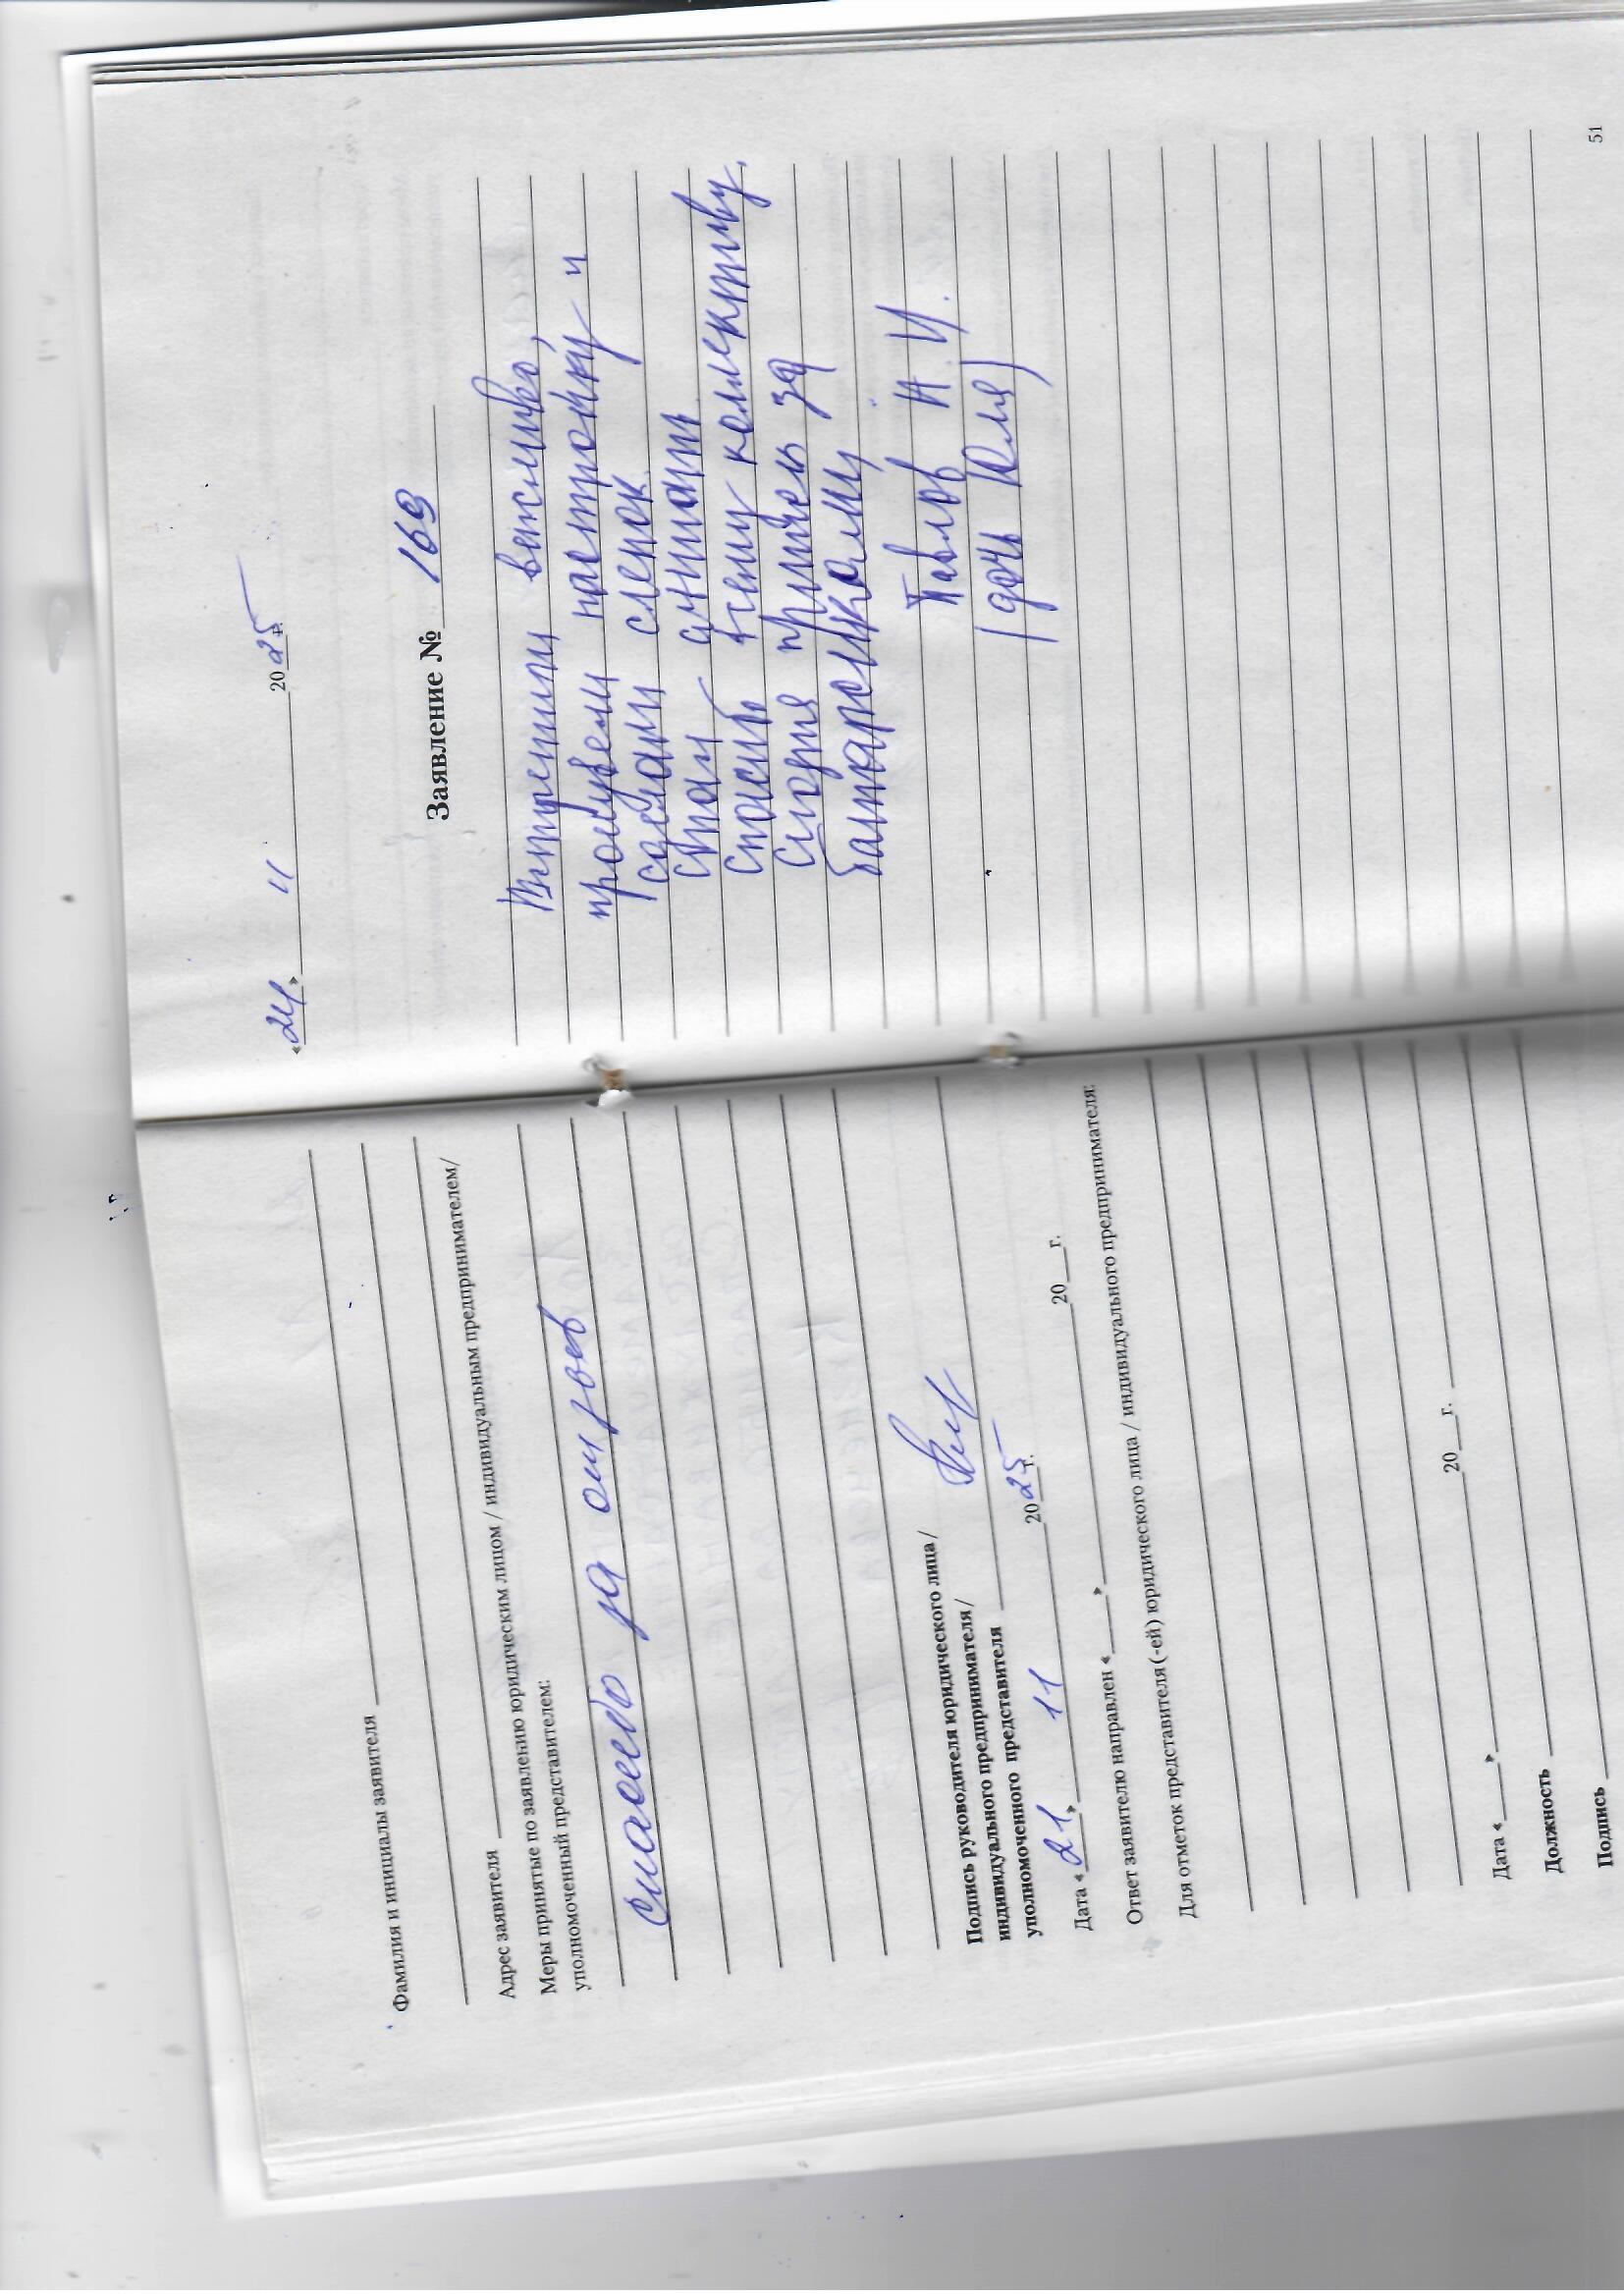 Фамилия и инициалы заявителя
Адрес заявителя
Меры принятые по заявлению юридическим лицом / индивидуальным предпринимателем/
уполномоченный представителем:
спасибо за отзыв
Подпись руководителя юридического лица /
индивидуального предпринимателя/
уполномоченного представителя
Дата «21» 11 2025 г.
Ответ заявителю направлен «___» 20__г.
Для отметок представителя(-ей) юридического лица / индивидуального предпринимателя:
Дата «___» 20__г.
Должность
Подпись
«24» 11 2025 г.
Заявление № 169
Встретили вежливо,
произвели настройку и
сделали слепок
стал слышать
Спасибо всему коллективу.
Сегодня пришел за
батарейками
Павлов Н И.
(дочь Юля)
51